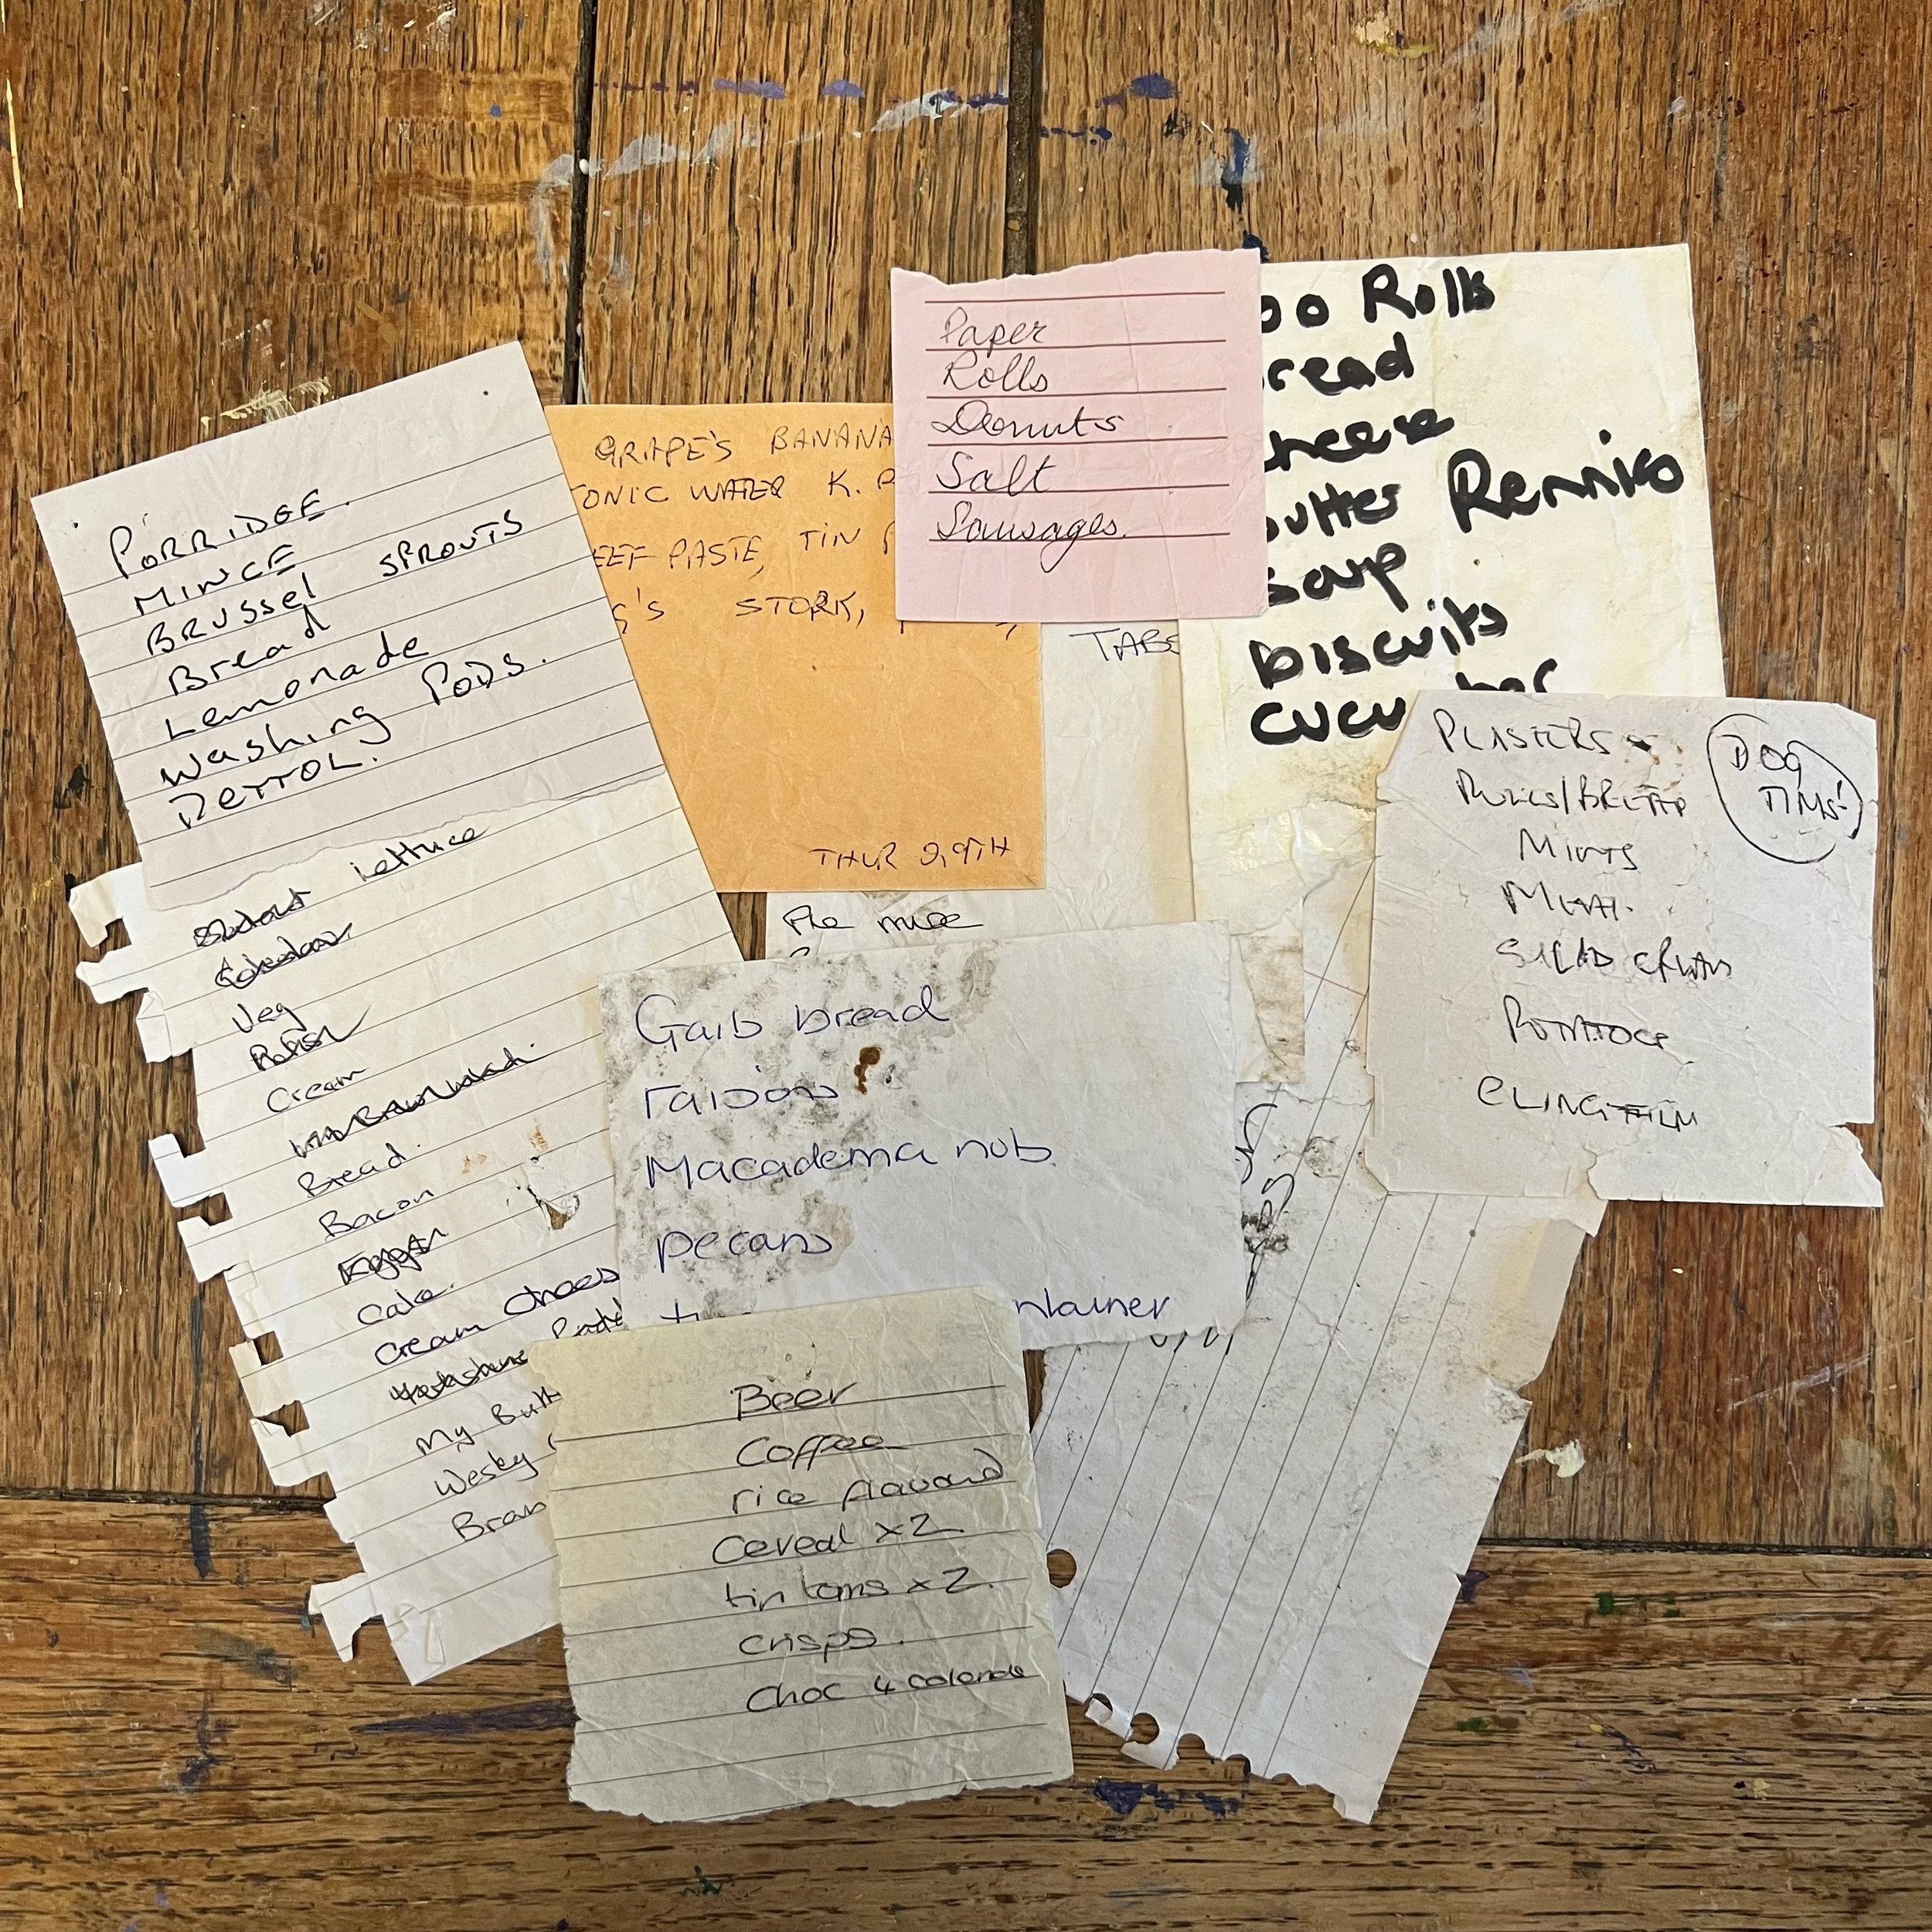 PORRIDGE.
MINCE
BRUSSEL SPROUTS
Bread
Lemonade
Washing PODS.
DETTOL.
lettuce
Veg
Relish
Cream
Bread.
Bacon
Eggs
Cake.
Cream Chees
Yorkshire
My Butt
Bran
GRAPE'S BANANA
ONIC WATER K.
EEF PASTE, TIN
G'S STORK,
THUR 29TH
Paper
Rolls
Donuts
Salt
Sausages.
oo Rolls
read
cheese
utter Rennies
soup
biscuits
cucu ber
TABS
PLASTERS
ROLLS/BREAD
DOG
TINS!
MINTS
MEAT.
SALAD CREAM
POTATOES
CLINGFILM
Garlb bread
raisons
Macadema nuts
pecans
ntainer
Beer
Coffee
rice flavourd
Cereal x2
tin toms x2.
crisps.
Choc 4 colande